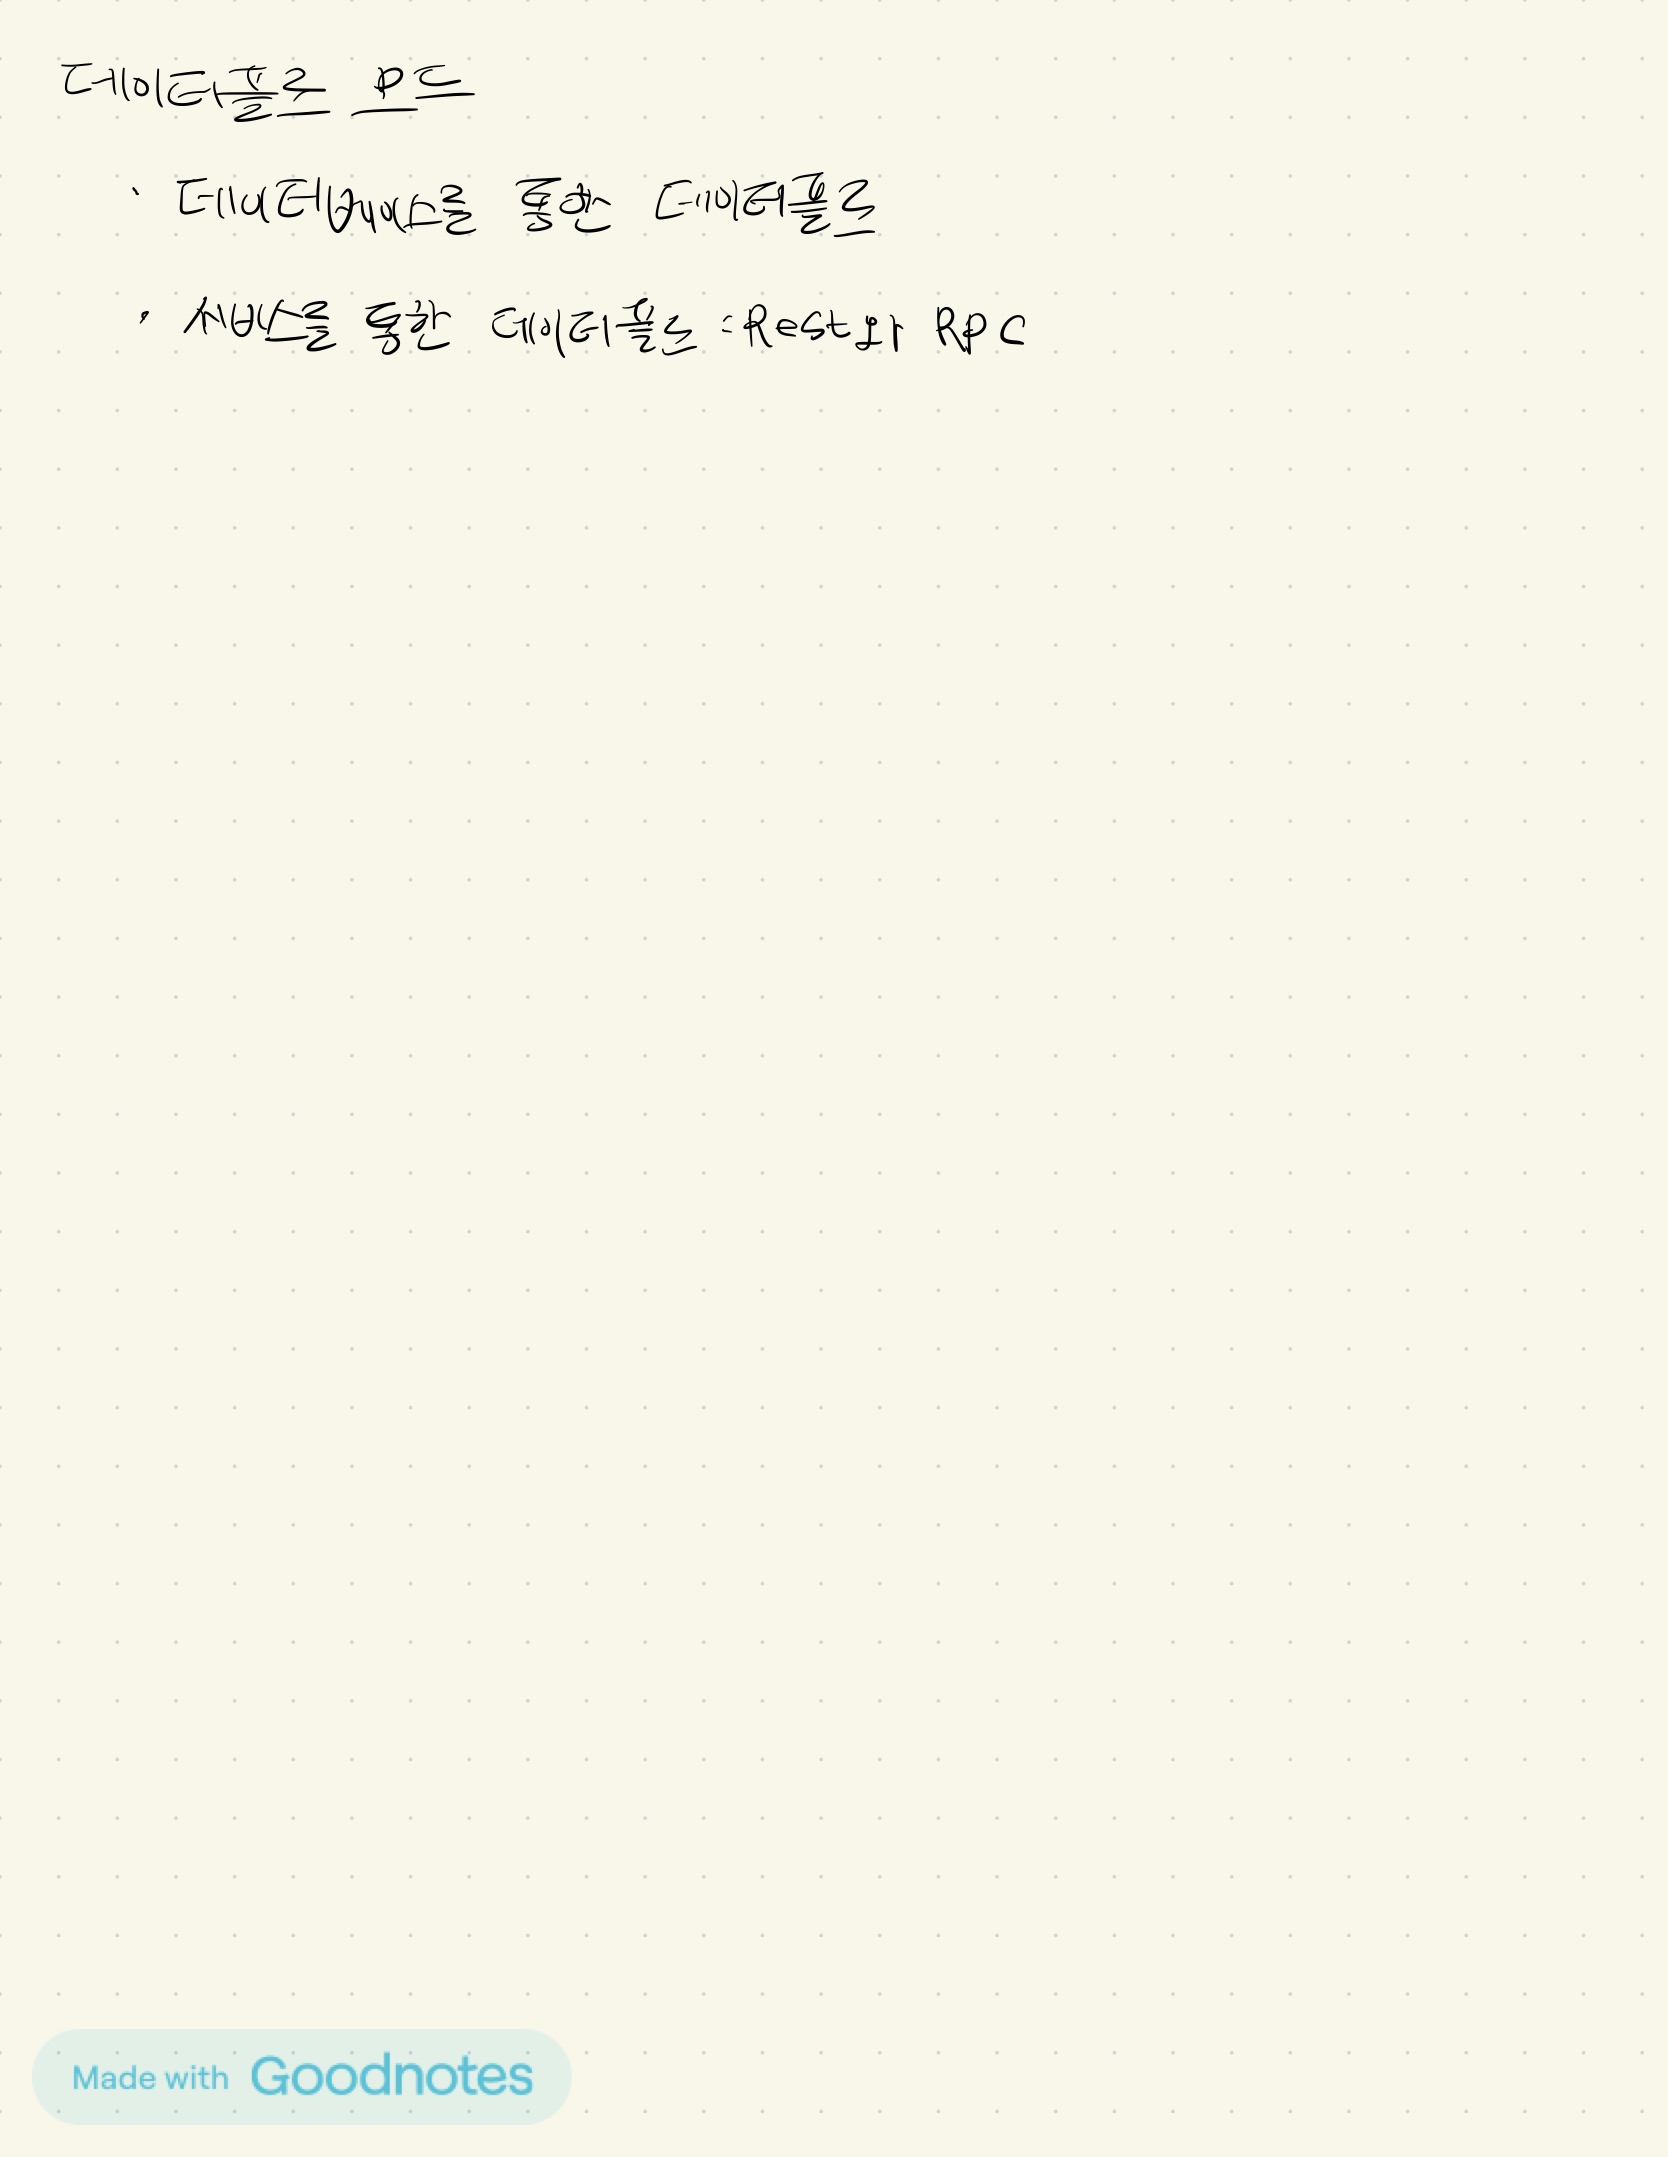 데이타플로 모드
· 데이터베이스를 통한 데이터플로
· 서비스를 통한 데이터플로 : Rest와 RPC
Made with Goodnotes